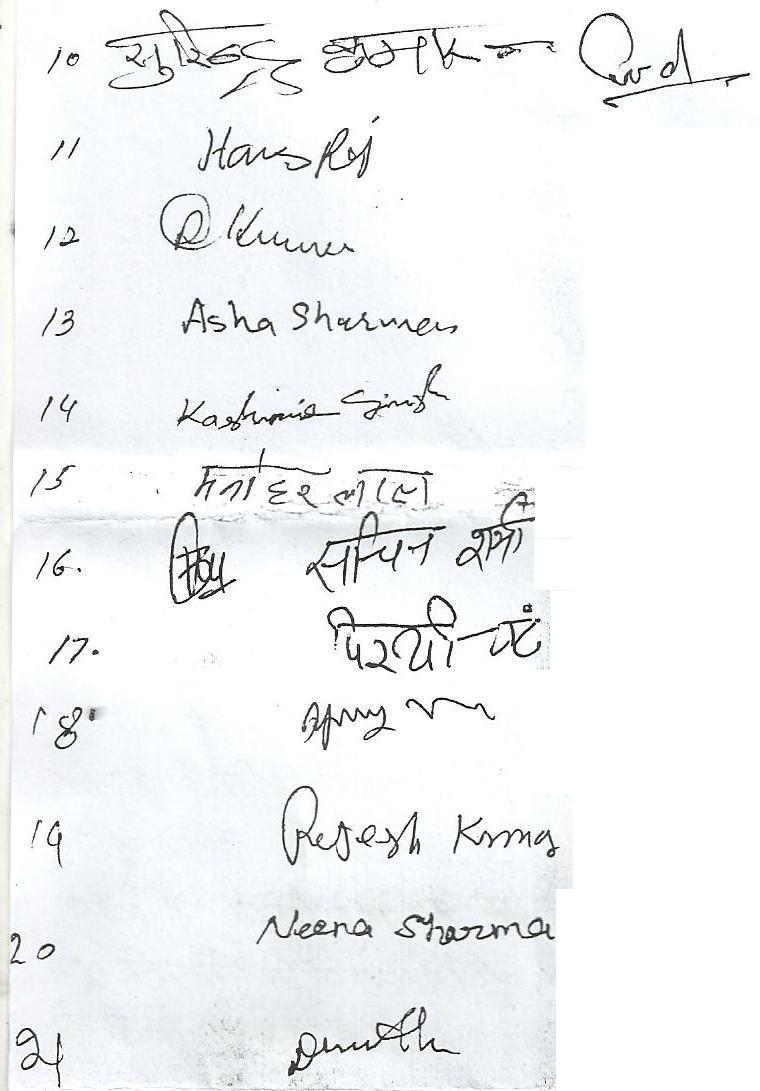 10
11 Hans Raj
12 R Kumar
13 Asha Sharma
14 Kashmir Singh
15 मनोहर लाल
16. सचिन शर्मा
17. पिरथी चंद
18
19 Rajesh Kumar
20 Neena Sharma
21